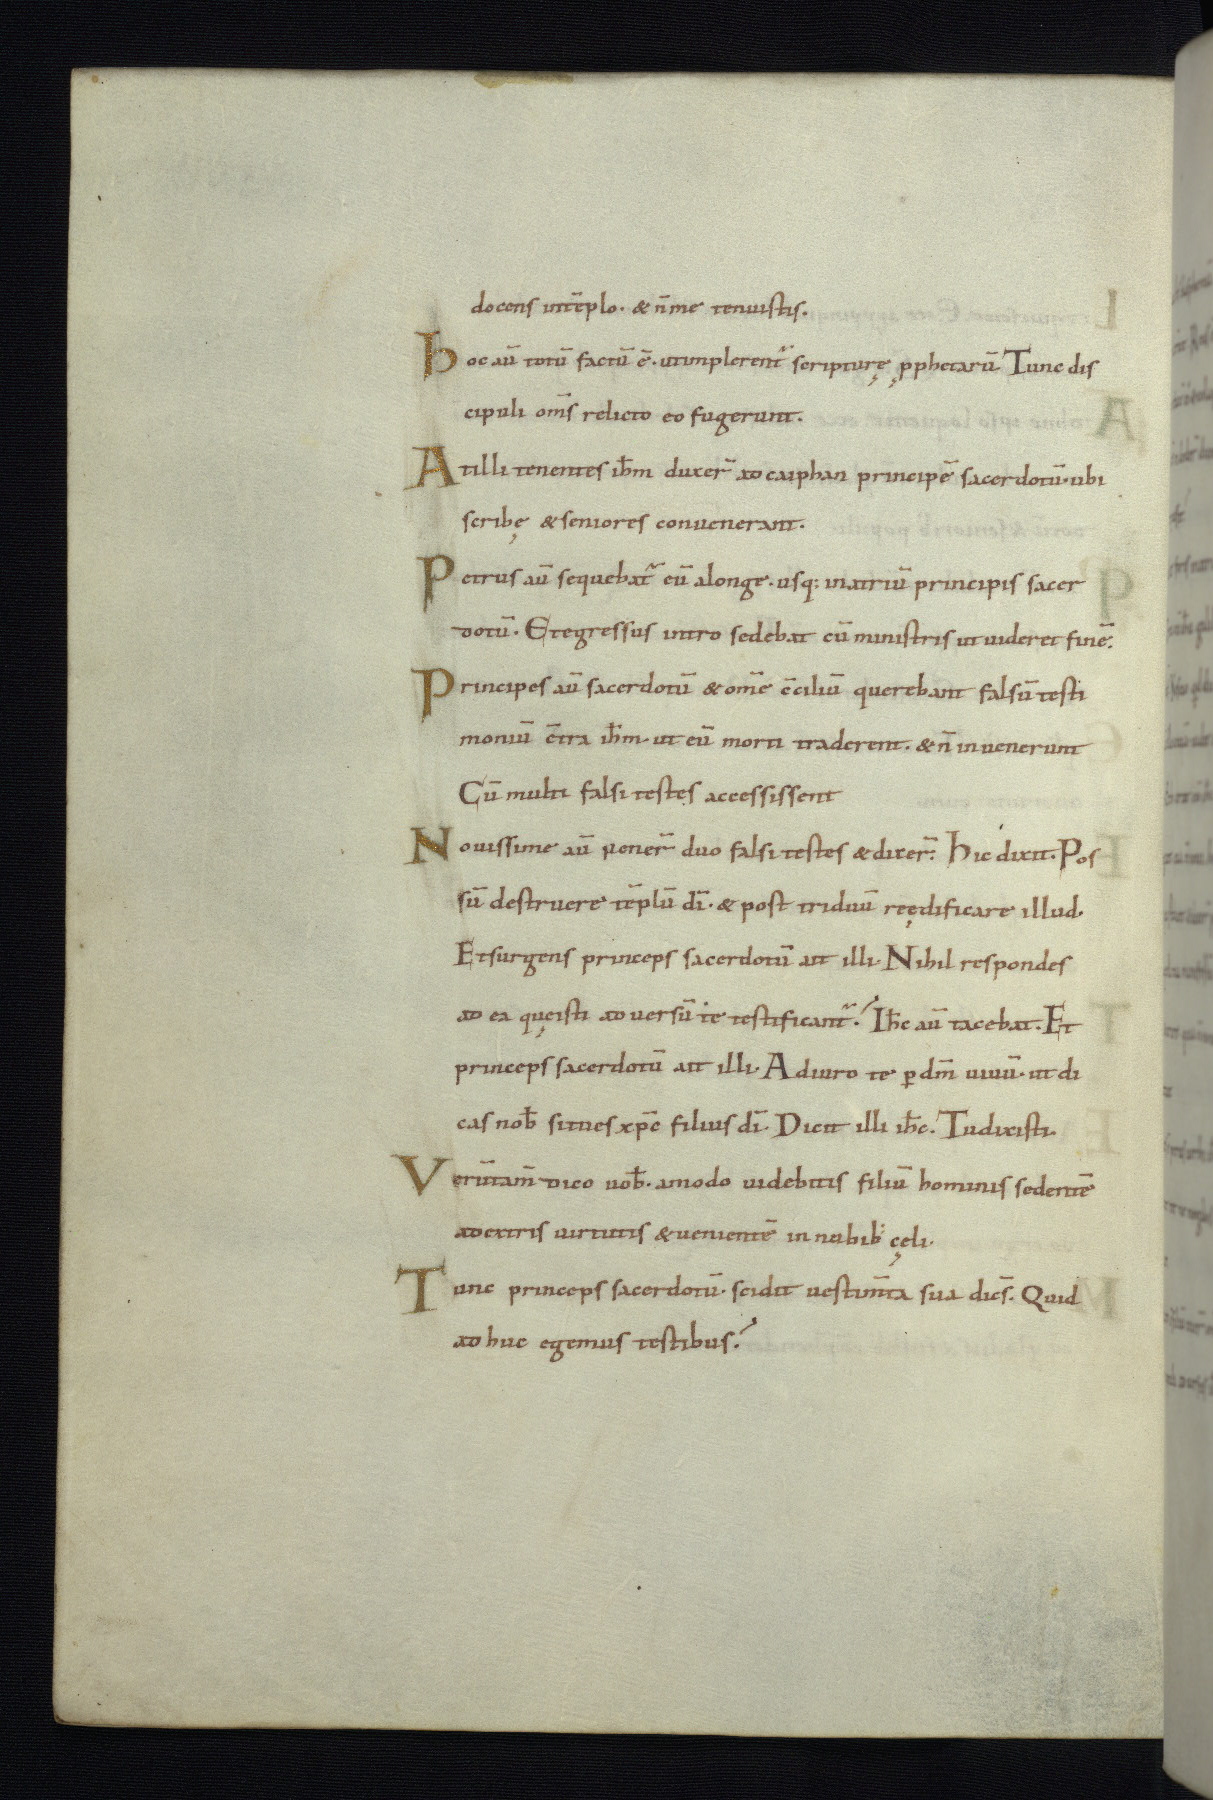 docens intẽplo· & n̄me tenuistis·
Hoc aū totū factū ē· utimplerent᷑ scripturę p̱phetarū Tunc dis
cipuli om̄s relicto eo fugerunt·
Atilli tenentes ih̄m duxer̄ ad caiphan principē sacerdotū· ubi
scribę & seniores convenerant·
Petrus aū sequebat᷑ eū alonge· usq; inatriū principis sacer
dotū· Etegressus intro sedebat cū ministris ut uideret finē·
Principes aū sacerdotū & om̄e c̄ciliū querebant falsū testi
moniū c̄tra ih̄m· ut eū morti traderent· & n̄ invenerunt
Cū multi falsi testes accessissent
Novissime aū vener̄ duo falsi testes & dixer̄· Hic dixit· Pos
sū destruere tēplū dī· & post triduū reędificare illud·
Etsurgens princeps sacerdotū ait illi· Nihil respondes
ad ea quęisti adversū te testificant᷑? Ih̄c aū tacebat· Et
princeps sacerdotū ait illi· Adiuro te ꝑ dm̄ uiuū· ut di
cas nob̄ situes xp̄c filius dī· Dicit illi ih̄c· Tudixisti·
Verūtam̄ dico uob̄· amodo uidebitis filiū hominis sedentē
adextris uirtutis & uenientē in nubib; cęli·
Tunc princeps sacerdotū· scidit uestim̄ta sua dicēs· Quid
adhuc egemus testibus?